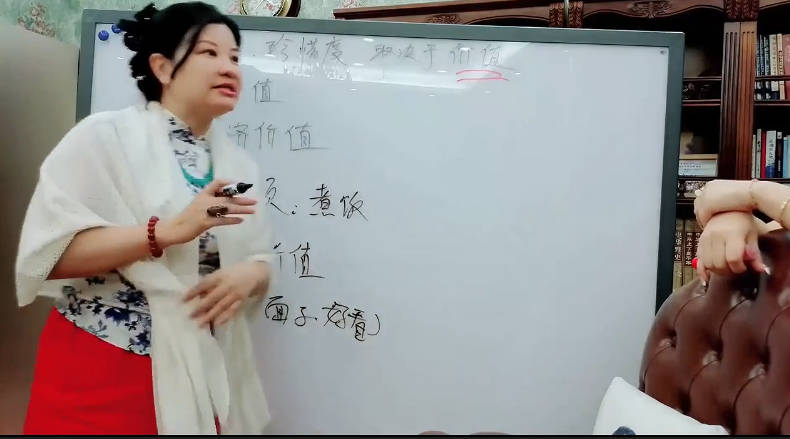 珍惜度 取决于价值
值
济价值
页：煮饭
值
面子.好看）